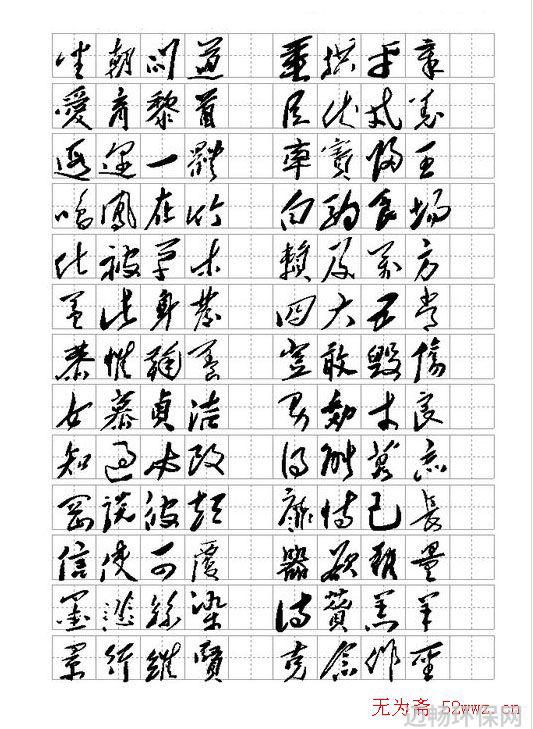 坐朝问道 垂拱平章
爱育黎首 臣伏戎羌
遐迩一体 率宾归王
鸣凤在竹 白驹食场
化被草木 赖及万方
盖此身发 四大五常
恭惟鞠养 岂敢毁伤
女慕贞洁 男效才良
知过必改 得能莫忘
罔谈彼短 靡恃己长
信使可覆 器欲难量
墨悲丝染 诗赞羔羊
景行维贤 克念作圣
无为斋 52wwz.cn
迈畅环保网